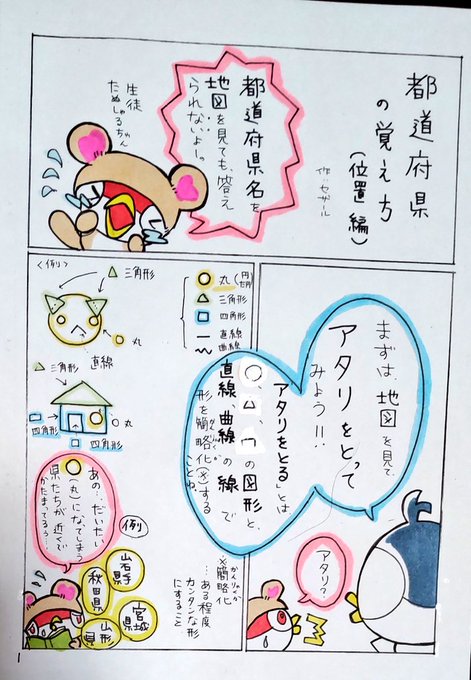 都道府県
の覚え方
(位置編)
作:セザール
都道府県名を
地図を見ても、答え
られないよーっ。
生徒
たぬしゃるちゃん
まずは、地図を見て、
アタリをとって
みよう!!
「アタリをとる」とは
○、△、□の図形と、
直線 曲線 の線で
形を簡略化(※)する
ことね。
アタリ?
※簡略化
かんりゃくか
…ある程度
カンタンな形
にすること
<例>
三角形
丸
直線
三角形
四角形
四角形
四角形
丸
丸(円)
三角形
四角形
直線
曲線
あの…だいたい
○(丸)になってしまう
県たちが近くで
かたまってるぅ…
(例)
岩手県
秋田県
宮城県
山形県
1